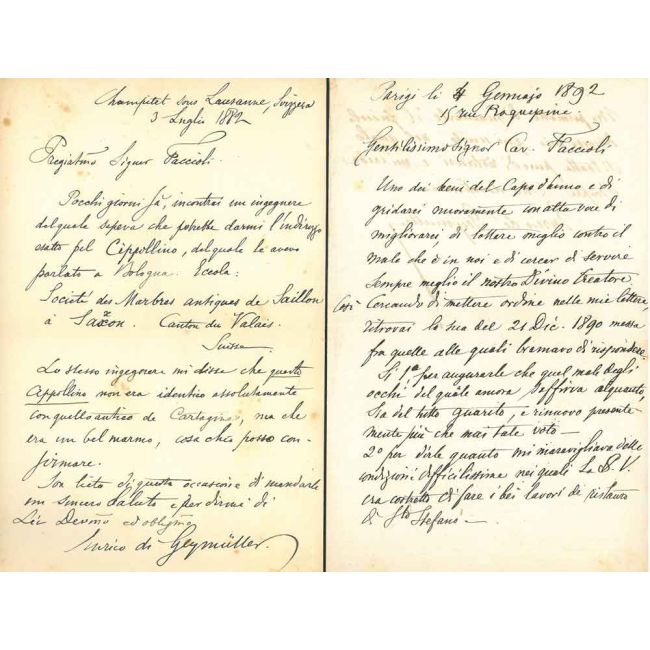 Champitet sous Lausanne, Svizzera
3 Luglio 1882
Pregiatmo Signor Faccioli.
Pochi giorni fà, incontrai un ingegnere
del quale sapeva che potrebbe darmi l'indirizzo
esatto pel Cippollino, del quale le avevo
parlato a Bologna. Eccola:
Société des Marbres antiques de Saillon
à Saxon. Canton du Valais.
Suisse
Lo stesso ingegnere mi disse che questo
Cippollino non era identico assolutamente
con quello antico de Cartagine, ma che
era un bel marmo, cosa che posso con-
firmare.
Son lieto di questa occasione di mandarle
un sincero saluto e per dirmi di
Lei Devmo ed obligmo
Enrico di Geymüller.
Parigi li 4 Gennajo 1892
15 rue Roquepine
Gentilissimo Signor Cav. Faccioli
Uno dei beni del Capo d'anno è di
gridarci nuovamente con alta voce di
migliorarci, di lottare meglio contro il
male che è in noi e di cercar di servire
sempre meglio il nostro Divino Creatore
Così Cercando di mettere ordine nelle mie lettere,
ritrovai la sua del 21 Dic. 1890 messa
fra quelle alle quali bramavo di rispondere:
Si 1º per augurarle che quel male degli
occhi del quale ancora soffriva alquanto,
sia del tutto guarito, e rinnovo presente-
mente più che mai tale voto —
2º per dirle quanto mi maravigliava delle
condizioni difficilissime nei quali La S. V.
era costretto di fare i bei lavori di ristauro
di Sto Stefano —